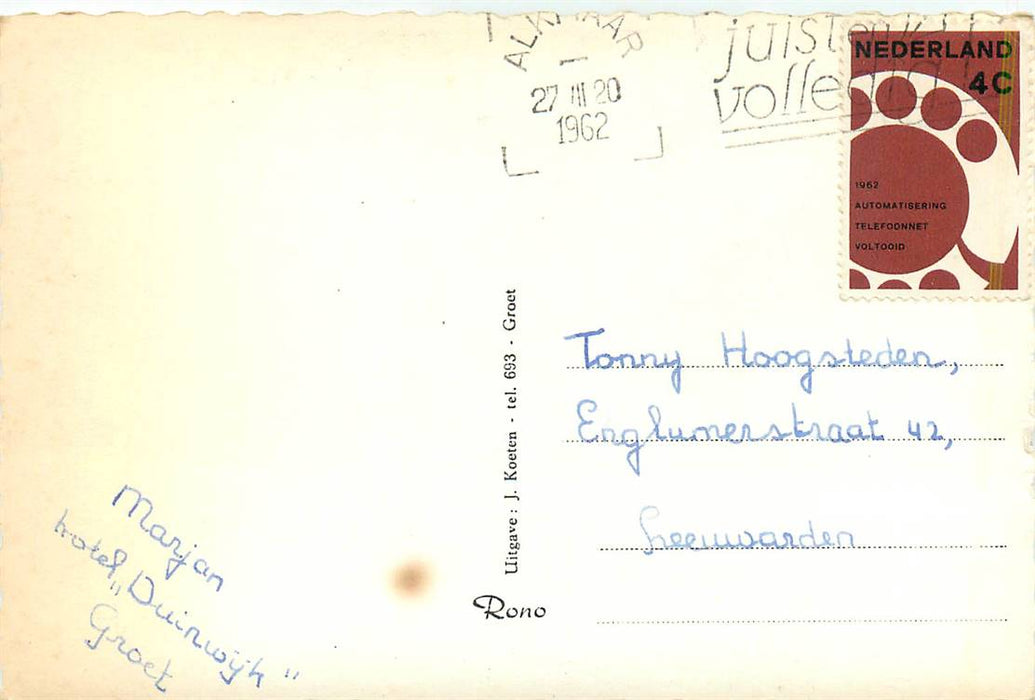 ALKMAAR
27 III 20
1962
juiste
volledig
NEDERLAND
4C
1962
AUTOMATISERING
TELEFOONNET
VOLTOOID
Uitgave: J. Koeten - tel. 693 - Groet
Tonny Hoogsteden,
Englumerstraat 42,
Leeuwarden
Marjan
hotel „Duinwijk"
Groet
Rono